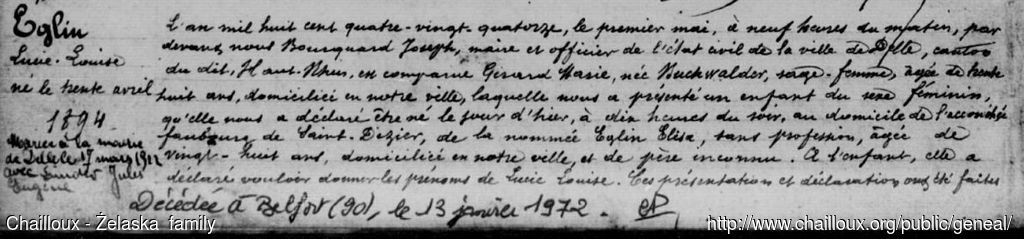 Eglin
Lucie-Louise
né le trente avril
1894
Mariée à la mairie
de Delle le 17 mars 1912
avec
Jules
Eugène
L'an mil huit cent quatre-vingt-quatorze, le premier mai, à neuf heures du matin, par
devant nous Bourquard Joseph, maire et officier de l'état civil de la ville de Delle, canton
du dit, Haut-Rhin, est comparue Gérard Marie, née Buchwalder, sage-femme, âgée de trente
huit ans, domiciliée en notre ville, laquelle nous a présenté un enfant du sexe féminin,
qu'elle nous a déclaré être né le jour d'hier, à dix heures du soir, au domicile de l'accouchée
faubourg de Saint-Dezier, de la nommée Eglin Elisa, sans profession, âgée de
vingt-huit ans, domiciliée en notre ville, et de père inconnu. A l'enfant, elle a
déclaré vouloir donner les prénoms de Lucie Louise. Ces présentation et déclaration ont été faites
Décédée à Belfort (90), le 13 janvier 1972.
Chailloux - Żelaska family
http://www.chailloux.org/public/geneal/